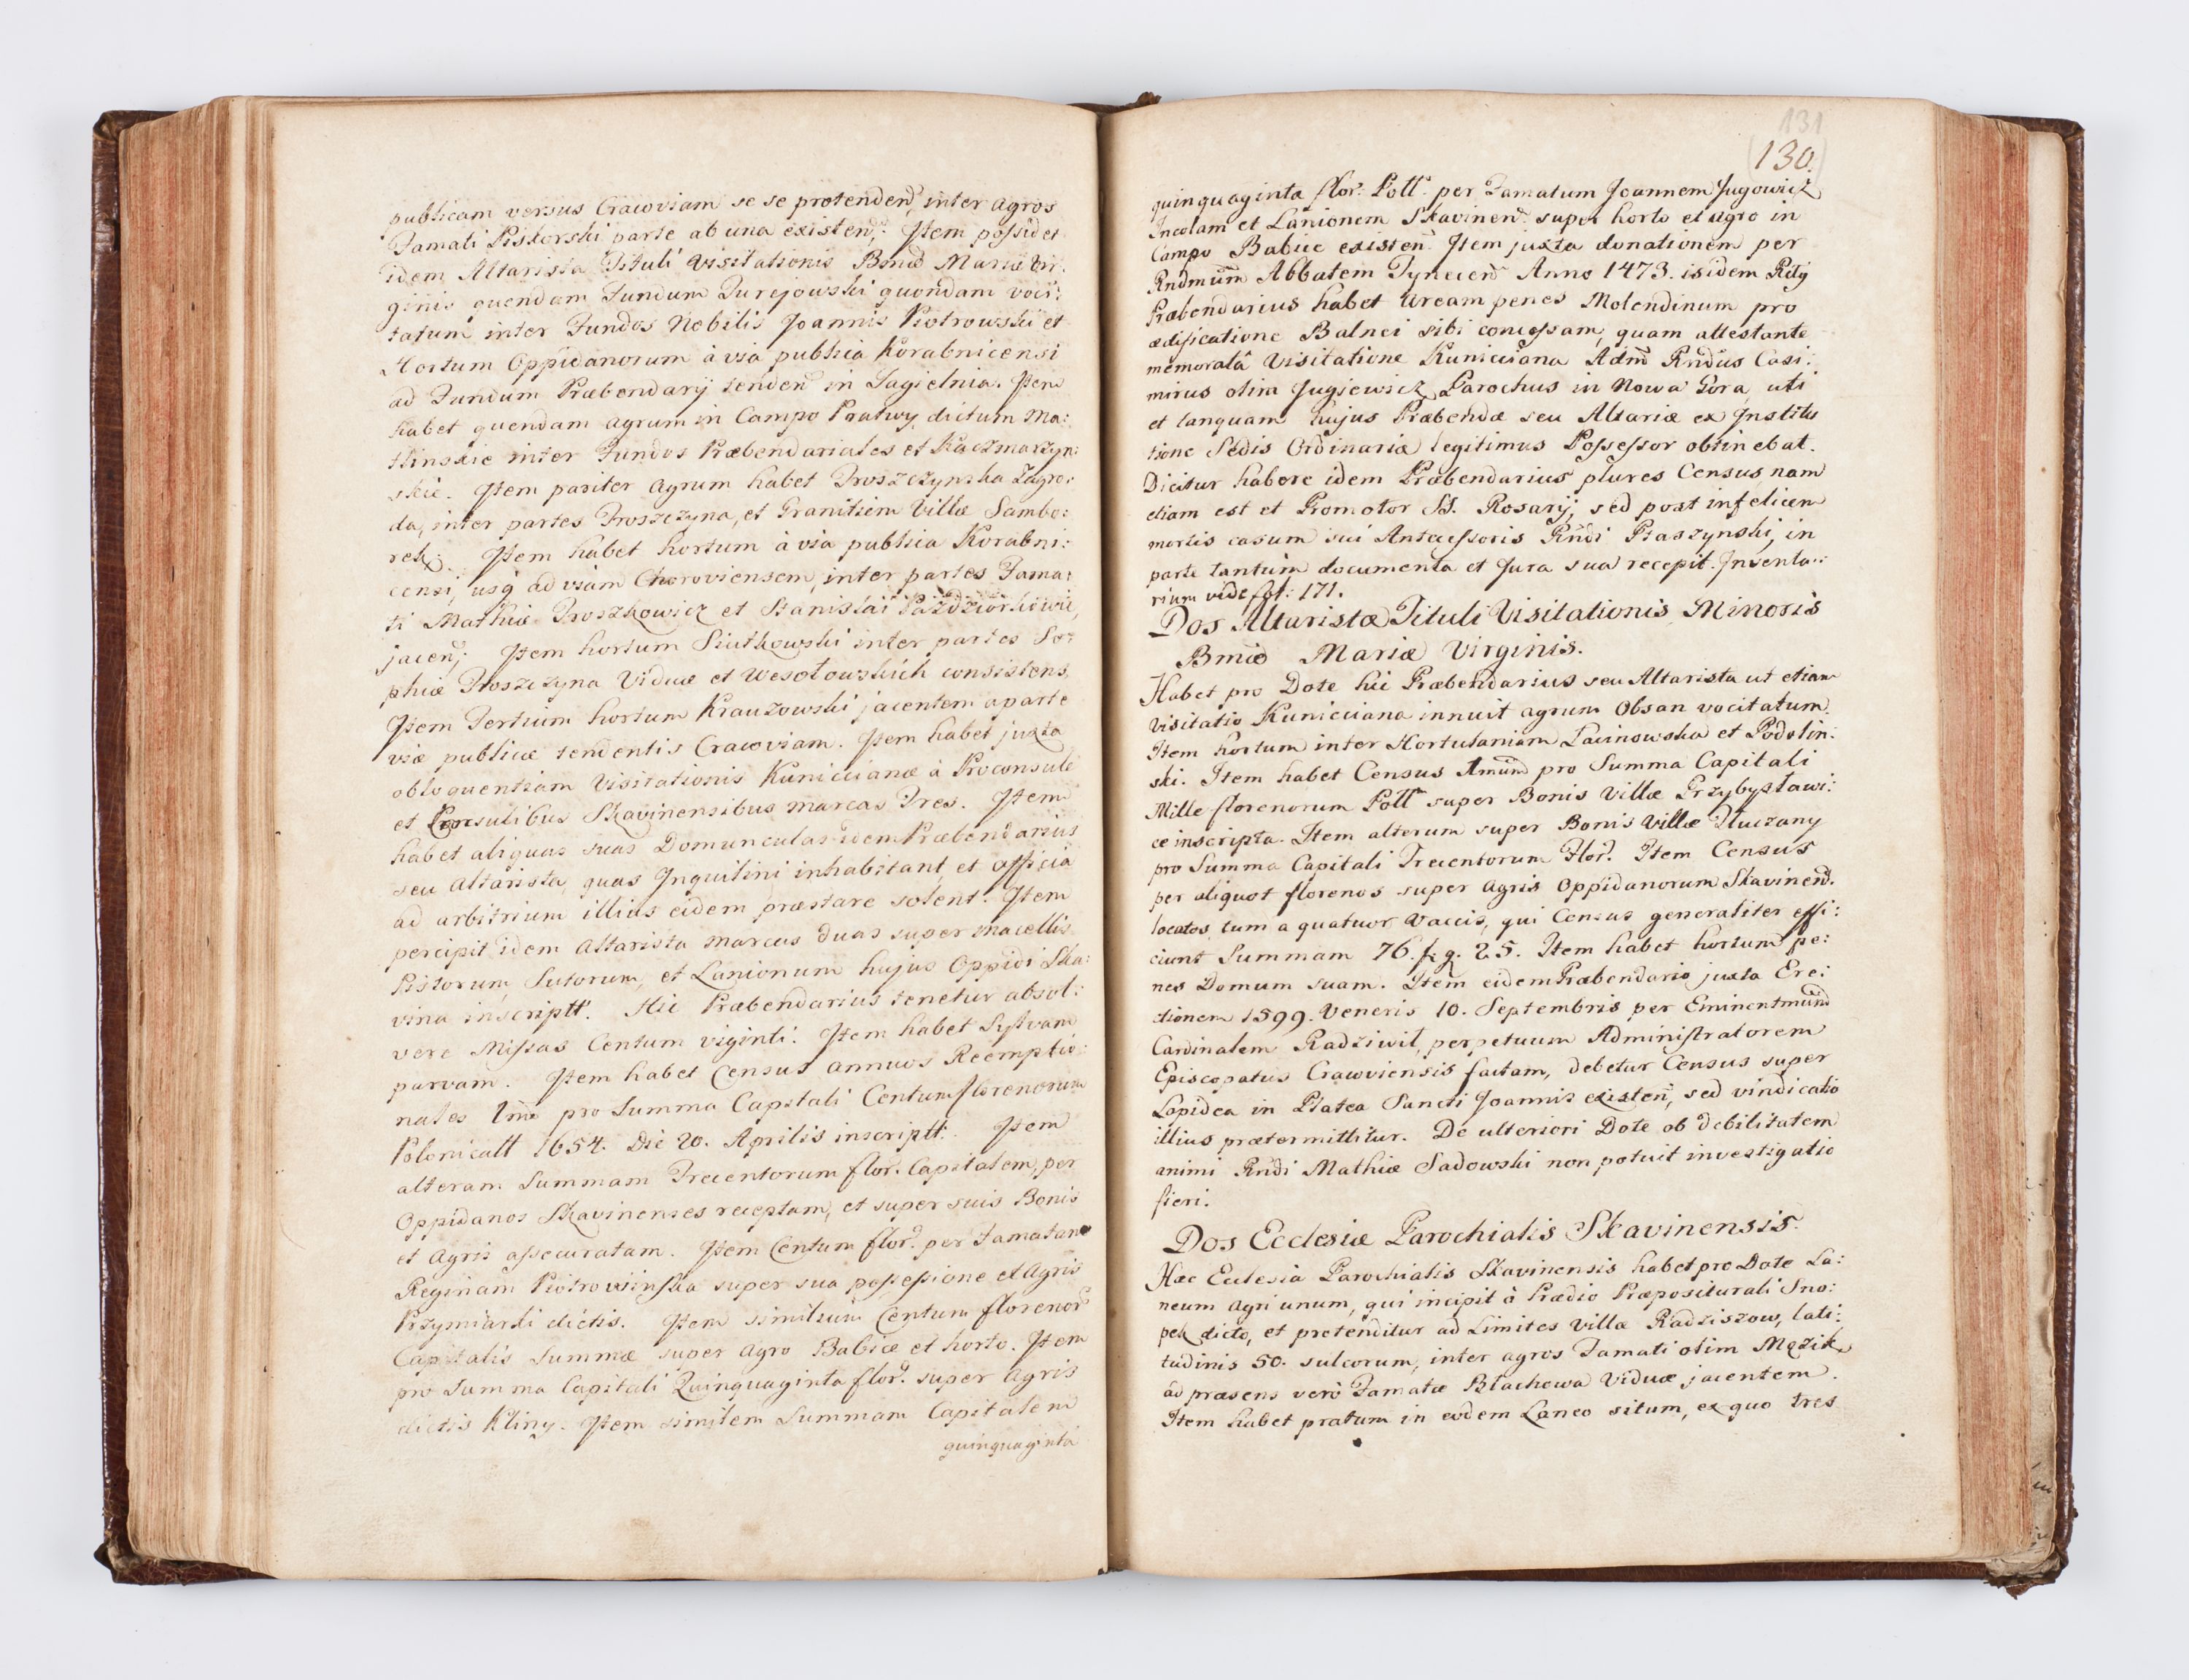 publicam versus Cracoviam se se protenden, inter agros
Famati Piskorski parte ab una existen; Item possidet
idem Altarista Tituli Visitationis Bmæ Mariæ Vir:
ginis quendam Fundum Jurejowski quondam voci:
tatum inter Fundos Nobilis Joannis Piotrowski et
Hortum Oppidanorum à via publica Korabnicensi
ad Fundum Præbendarij tenden in Sagielnia. Item
habet quendam agrum in Campo Pratwy, dictum Ma:
tlinskie inter Fundos Præbendariales et Kaczmarzyn:
skie. Item pariter agrum habet Troszczynska Zagro:
da, inter partes Troszczyna, et Granitiem Villæ Sambo:
rek. Item habet hortum à via publica Korabni:
censi, usq ad viam Choroviensem, inter partes Fama:
ti Mathiæ Troszkowicz et Stanislai Pazdziorkowic,
jacen; Item hortum Siutkowski inter partes So:
phiæ Troszczyna Viduæ et Wesołowskich consistens,
Item Tertium hortum Krauzowski jacentem a parte
viæ publicæ tendentis Cracoviam. Item habet juxta
obloquentiam Visitationis Kuniccianæ à Proconsule
et Consulibus Skavinensibus marcas Tres. Item
habet aliquas suas Domunculas idem Præbendarius
seu Altarista, quas Inquilini inhabitant, et officia
ad arbitrium illius eidem præstare solent. Item
percipit idem Altarista marcas duas super macellis
Pistorum, Sutorum, et Lanionum hujus Oppidi Ska:
vina inscriptt. Hic Præbendarius tenetur absol:
vere Missas Centum viginti. Item habet Sylvam
parvam. Item habet Census annuos Reemptio:
nales Imo pro Summa Capitali Centum florenorum
Polonicall 1654. Die 20. Aprilis inscriptt. Item
alteram Summam Trecentorum flor. Capitalem, per
Oppidanos Skavinenses receptam, et super suis Bonis
et Agris assecuratam. Item Centum flor. per Famatam
Reginam Piotrowsinska super sua possessione et Agris
Przymiarki dictis. Item similium Centum florenor
Capitalis Summæ super agro Babice et horto. Item
pro Summa Capitali Quinquaginta flor. super Agris
dictis Kliny. Item similem Summam Capitalem
quinquaginta
131
(130.)
quinquaginta flor. Poll. per Famatum Joannem Jugowicz
Incolam et Lanionem Skavinen super horto et agro in
Campo Babice existen. Item juxta donationem per
Rndmum Abbatem Tynecen Anno 1473. isidem Rdg
Præbendarius habet aream penes Molendinum pro
ædificatione Balnei sibi concessam, quam attestante
memoratâ Visitatione Kunicciana Adm Rndus Casi:
mirus olim Jugiewicz Parochus in Nowa Gora, uti
et tanquam hujus Præbendæ seu Altariæ ex Institu
tione Sedis Ordinariæ legitimus Possessor obtinebat.
Dicitur habere idem Præbendarius plures Census, nam
etiam est et Promotor SS. Rosarij, sed post infelicem
mortis casum sui Antecessoris Rndi Ptaszynski, in
parte tantum documenta et Jura sua recepit. Inventa:
rium vide fol: 171.
Dos Altaristæ Tituli Visitationis Minoris
Bmæ Mariæ Virginis.
Habet pro Dote hic Præbendarius seu Altarista ut etiam
Visitatio Kunicciana innuit agrum Obsan vocitatum.
Item hortum inter Hortulaniam Lacinowska et Podolin:
ski. Item habet Census Imum pro Summa Capitali
Mille florenorum Poll super Bonis Villæ Przybysławi:
ce inscripta. Item alterum super Bonis Villæ Tluczany
pro Summa Capitali Trecentorum Flor. Item Census
per aliquot florenos super agris Oppidanorum Skavinen.
locatos, tum a quatuor Vaccis, qui Census generaliter effi:
ciunt Summam 76. f. g. 25. Item habet hortum pe:
nes Domum suam. Item eidem Præbendario juxta Ere:
ctionem 1599. Veneris 10. Septembris per Eminentmum
Cardinalem Radziwił, perpetuum Administratorem
Episcopatus Cracoviensis factam, debetur Census super
Lapidea in Platea Sancti Joannis existen, sed vindicatio
illius prætermittitur. De ulteriori Dote ob debilitatem
animi Rndi Mathiæ Sadowski non potuit investigatio
fieri.
Dos Ecclesiæ Parochialis Skavinensis.
Hæc Ecclesia Parochialis Skavinensis habet pro Dote La:
neum agri unum, qui incipit à Prædio Præpositurali Sno:
pek dicto, et pretenditur ad Limites Villæ Radziszow, lati:
tudinis 50. sulcorum, inter agros Famati olim Mązik,
ad præsens verò Famatæ Błachowa Viduæ jacentem.
Item habet pratum in eodem Laneo situm, ex quo tres